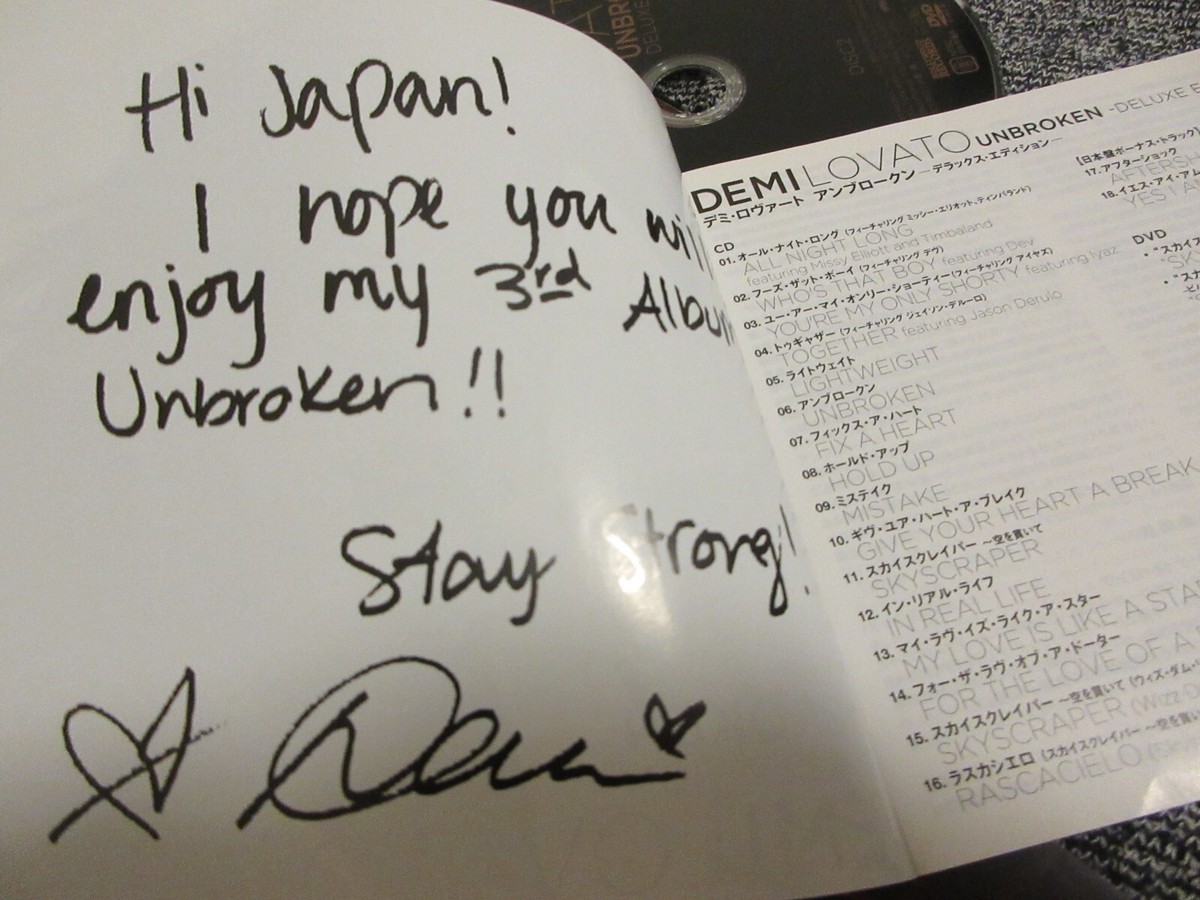 Hi Japan!
I hope you will
enjoy my 3rd Album
Unbroken!!
Stay Strong!
DISC2
DEMI LOVATO UNBROKEN -DELUXE E
デミ・ロヴァート アンブロークン ―デラックス・エディション―
CD
01. オール・ナイト・ロング (フィーチャリング ミッシー・エリオット、ティンバランド)
ALL NIGHT LONG
featuring Missy Elliott and Timbaland
02. フーズ・ザット・ボーイ (フィーチャリング デヴ)
WHO'S THAT BOY featuring Dev
03. ユー・アー・マイ・オンリー・ショーティー (フィーチャリング アイヤズ)
YOU'RE MY ONLY SHORTY featuring Iyaz
04. トゥギャザー (フィーチャリング ジェイソン・デルーロ)
TOGETHER featuring Jason Derulo
05. ライトウェイト
LIGHTWEIGHT
06. アンブロークン
UNBROKEN
07. フィックス・ア・ハート
FIX A HEART
08. ホールド・アップ
HOLD UP
09. ミステイク
MISTAKE
10. ギヴ・ユア・ハート・ア・ブレイク
GIVE YOUR HEART A BREAK
11. スカイスクレイパー ～空を貫いて
SKYSCRAPER
12. イン・リアル・ライフ
IN REAL LIFE
13. マイ・ラヴ・イズ・ライク・ア・スター
MY LOVE IS LIKE A STA
14. フォー・ザ・ラヴ・オブ・ア・ドーター
FOR THE LOVE OF A
15. スカイスクレイパー ～空を貫いて (ウィズ・ダム・
SKYSCRAPER (Wizz
16. ラスカシエロ (スカイスクレイパー ～空を貫いて
RASCACIELO
【日本盤ボーナス・トラック】
17. アフターショック
AFTERSH
18. イエス・アイ・アム
YES I A
DVD